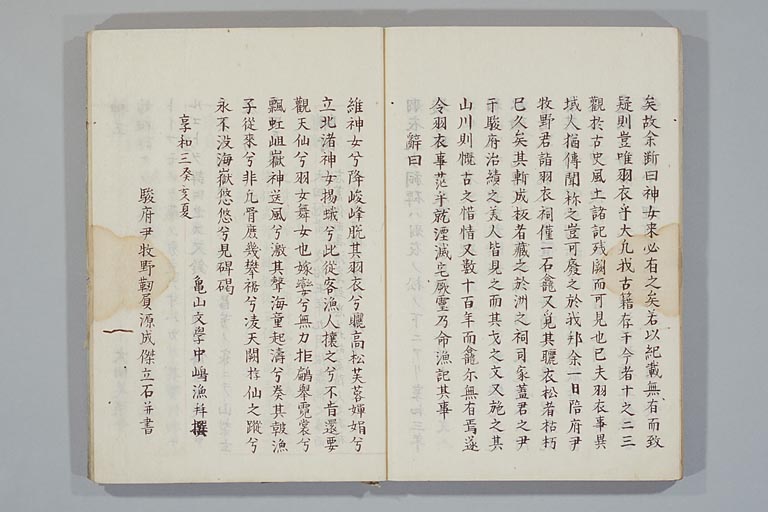 矣故余斷曰神女来必有之矣若以紀載無有而致
疑則豈唯羽衣乎大凡我古籍存于今者十之二三
觀於古史風土諸記残闕而可見也已夫羽衣事異
域人猶傳聞称之豈可廢之於我邦余一日陪府尹
牧野君詣羽衣祠僅一石龕又覓其曬衣松者枯朽
已久矣其斬成板者藏之於洲之祠司家蓋君之尹
于駿府治績之美人皆見之而其戈之文又施之其
山川則慨古之惜情又數十百年而龕亦無有焉遂
令羽衣事茫乎就湮滅宅厥靈乃命漁記其事
辭曰
維神女兮降峻峰脱其羽衣兮曬高松芙蓉婵娟兮
立北渚神女揚蛾兮此從容漁人攘之兮不肯還要
觀天仙兮羽女舞女也嫁兮無力拒翩舉霓裳兮
飄虹岨嶽神送風兮激其聲海童起濤兮奏其皷漁
子從来兮非凡骨庶幾攀裾兮凌天闕仙之蹤兮
永不没海嶽悠悠兮見碑碣
享和三癸亥夏
龜山文學中嶋漁科撰
駿府尹牧野靭負源成傑立石并書